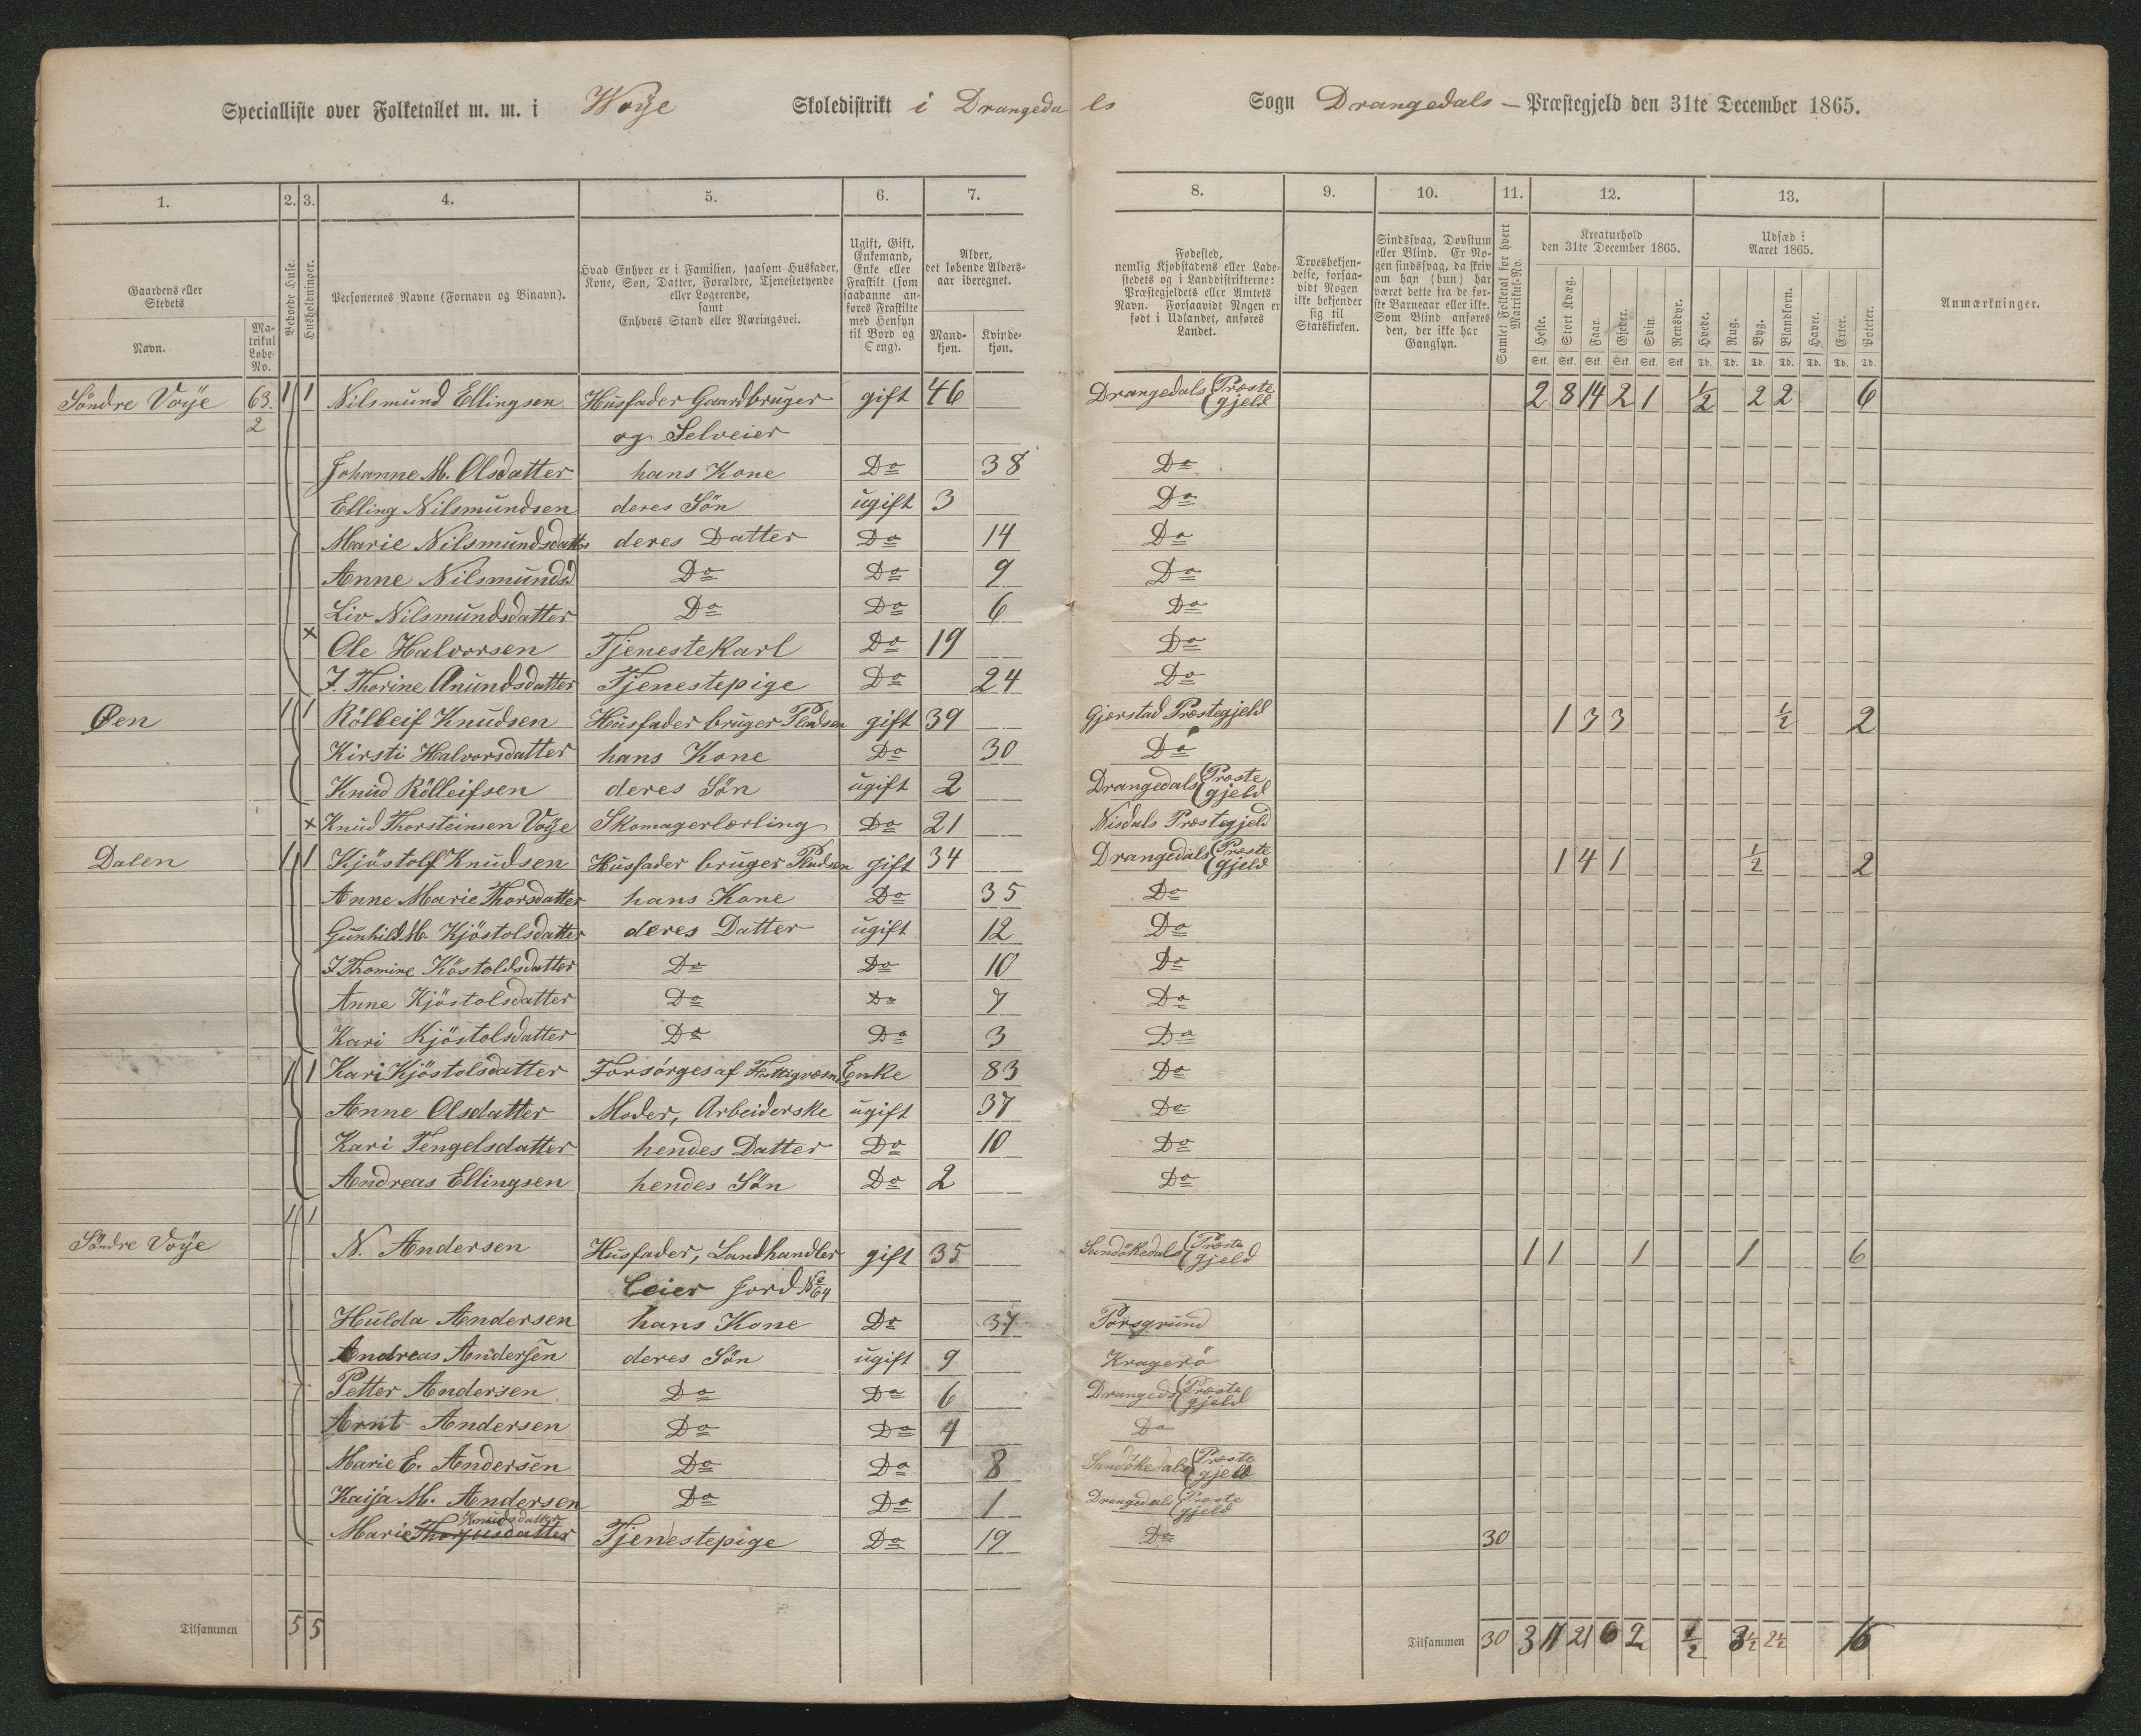 Specialliste over Folketallet m. m. i Woÿe Skoledistrikt i Drangedals Sogn Drangedals — Præstegjeld den 31te December 1865.
1. 2. 3. 4. 5. 6. 7. 8. 9. 10. 11. 12. 13.
Gaardens eller Stedets
Navn.
Matrikul Løbe-No.
Beboede Huse.
Husholdninger.
Personernes Navne (Fornavn og Binavn).
Hvad Enhver er i Familien, saasom Husfader, Kone, Søn, Datter, Forældre, Tjenestetyende eller Logerende, samt Enhvers Stand eller Næringsvei.
Ugift, Gift, Enkemand, Enke eller Fraskilt (som saadanne anføres Fraskilte med Hensyn til Bord og Seng).
Alder, det løbende Aldersaar iberegnet.
Mandkjøn. Kvindekjøn.
Fødested, nemlig Kjøbstadens eller Ladestedets og i Landdistrikterne: Præstegjeldets eller Amtets Navn. Forsaavidt Nogen er født i Udlandet, anføres Landet.
Troesbekjendelse, forsaavidt Nogen ikke bekjender sig til Statskirken.
Sindssvag, Døvstum eller Blind. Er Nogen sindssvag, da skriv om han (hun) har været dette fra de første Barneaar eller ikke. Som Blind anføres den, der ikke har Gangsyn.
Samlet Folketal for hvert Matrikul-No.
Kreaturhold den 31te December 1865.
Heste. Stort Kvæg. Faar. Gjeder. Svin. Rensdyr.
Stk. Stk. Stk. Stk. Stk. Stk.
Udsæd i Aaret 1865.
Hvede. Rug. Byg. Blandkorn. Havre. Erter. Poteter.
Td. Td. Td. Td. Td. Td. Td.
Anmærkninger.
Söndre Voÿe 63. 1 1 Nilsmund Ellingsen Husfader Gaardbruger gift 46 Drangedals Præstegjeld 2 8 14 2 1 ½ 2 2 6
2 og Selveier
Johanne M. Olsdatter hans Kone Do 38 Do
Elling Nilsmundsen deres Sön ugift 3 Do
Marie Nilsmundsdatter deres Datter Do 14 Do
Anne Nilsmundsd Do Do 9 Do
Liv Nilsmundsdatter Do Do 6 Do
x Ole Halvorsen Tjenestekarl Do 19 Do
J. Thorine Anundsdatter Tjenestepige Do 24 Do
Øen 1 1 Rölleif Knudsen Husfader bruger Pladsen gift 39 Gjerstad Præstegjeld 1 3 3 ½ 2
Kirsti Halvorsdatter hans Kone Do 30 Do
Knud Rölleifsen deres Sön ugift 2 Drangedals Præstegjeld
x Knud Thorsteinsen Voÿe Skomagerlærling Do 21 Nisdals Præstegjeld
Dalen 1 1 Kjöstolf Knudsen Husfader bruger Pladsen gift 34 Drangedals Præstegjeld 1 4 1 ½ 2
Anne Marie Thorsdatter hans Kone Do 35 Do
Gunhild M. Kjöstolsdatter deres Datter ugift 12 Do
J Thomine Köstoldsdatter Do Do 10 Do
Anne Kjöstolsdatter Do Do 7 Do
Kari Kjöstolsdatter Do Do 3 Do
1 1 Kari Kjöstolsdatter Forsørges af Fattigvæsnet Enke 83 Do
Anne Olsdatter Moder, Arbeiderske ugift 37 Do
Kari Tengelsdatter hendes Datter Do 10 Do
Andreas Ellingsen hendes Sön Do 2 Do
1 1
Söndre Voÿe N. Andersen Husfader, Landhandler gift 35 Sandökedals Præstegjeld 1 1 1 1 6
Leier Jord No 64
Hulda Andersen hans Kone Do 37 Porsgrund
Andreas Andersen deres Sön ugift 9 Kragerö
Petter Andersen Do Do 6 Drangeds Præstegjeld
Arnt Andersen Do Do 4 Do
Marie E. Andersen Do Do 8 Sandökedals Præstegjeld
Kaija M. Andersen Do Do 1 Drangedals Præstegjeld
Knudsdatter
Marie Tjenestepige Do 19 Do 30
Tilsammen 5 5 Tilsammen 30 3 11 21 6 2 ½ 3½ 2½ 16